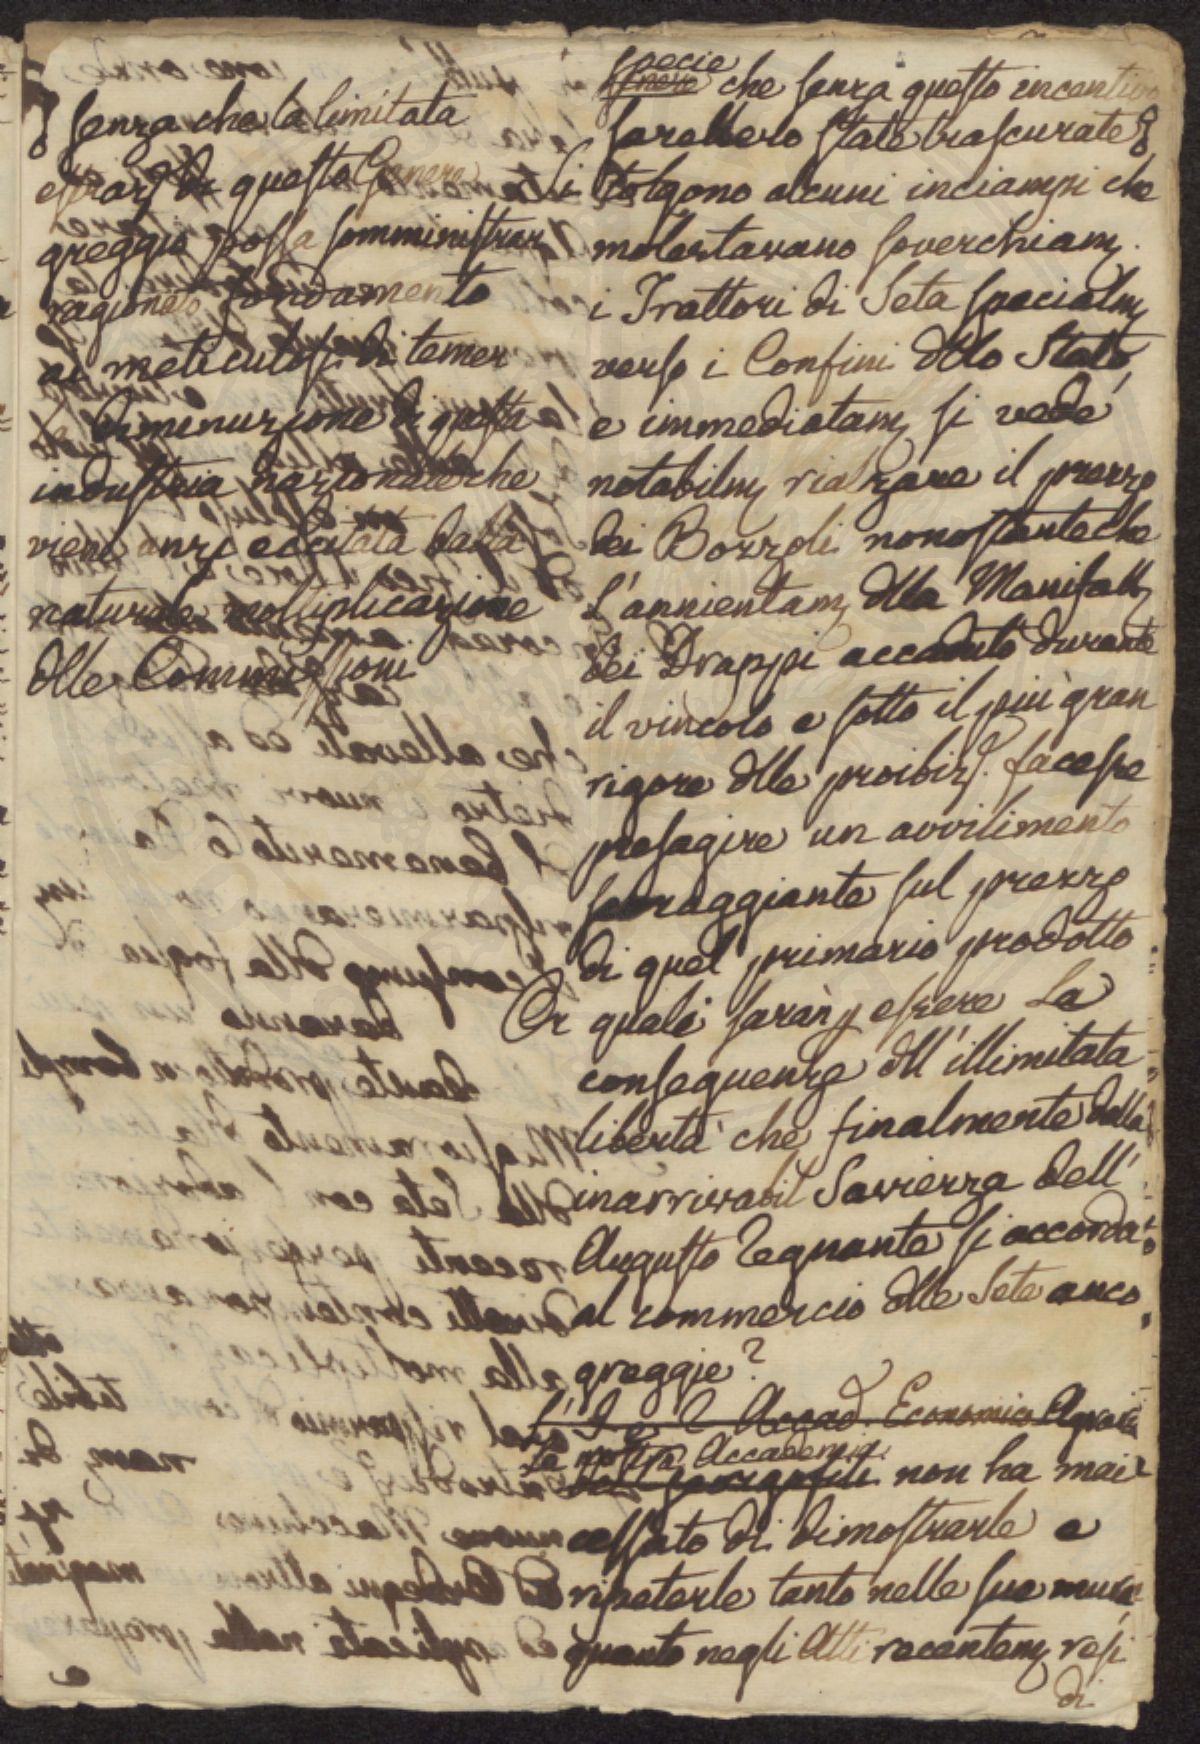 senza che la limitata
estraz. di questo Genere
greggio possa somministrar
ragionato fondamento
ai meticulosi di temer
la diminuzione di questa
industria nazionale che
viene anzi eccitata dalla
naturale moltiplicazione
dlle Commissioni
specie
genere che senza questo incentivo
sarebbero state trascurate
Si tolgono alcuni inciampi che
molestavano soverchiam.
i Trattori di Seta specialm.
verso i Confini dllo Stato,
e immediatam. si vede
notabilm. rialzare il prezzo
dei Bozzoli nonostante che
l'annientam. dlla Manifatt.
dei Drappi accaduto durante
il vincolo e sotto il più gran
rigore dlle proibiz. facesse
presagire un avvilimento
scoraggiante sul prezzo
di quel primario prodotto
Or quali saran p essere le
conseguenze dll'illimitata
libertà che finalmente dalla
inarrivabil Saviezza dell'
Augusto Regnante si accorda
al commercio dlle Sete anco
greggie?
L'I. e R. Accad. Economico Agraria
La nostra Accademia
dei Georgofili non ha mai
cessato di dimostrarle e
ripeterle tanto nelle sue mura
quanto negli Atti recentem. resi
di